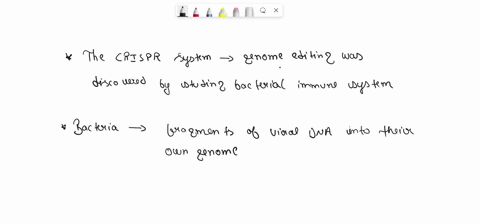 * The CRISPR system → genome editing was
discovered by studing bacterial immune system
* Bacteria → fragments of viral DNA into their
own genome